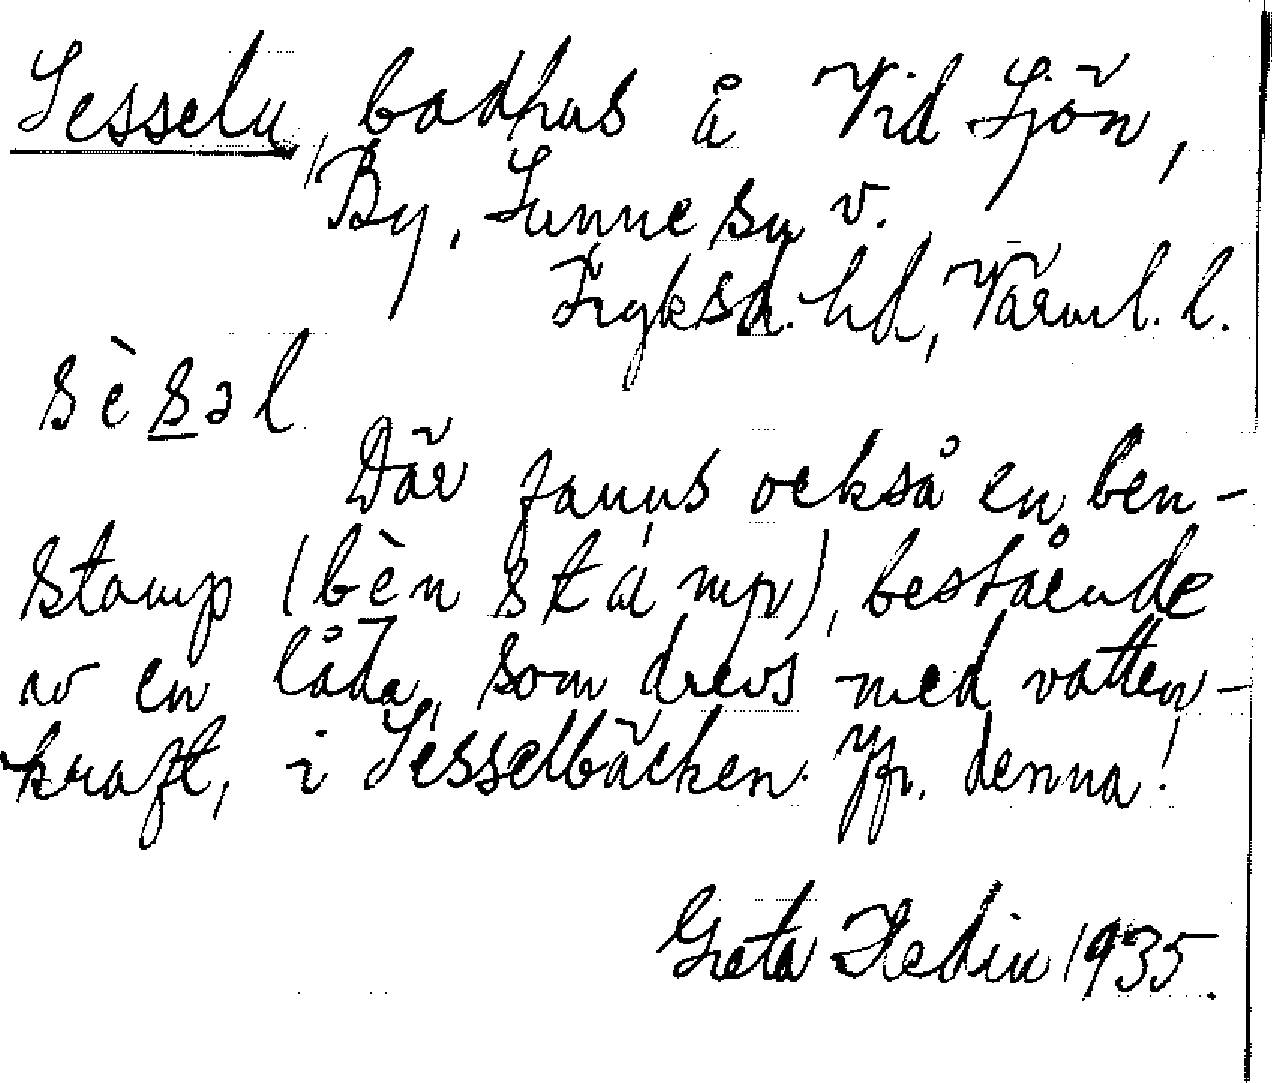 Sesseln, badhus å Vid Sjön,
By, Sunne sn v.
Fryksd. hd, Värml. l.
sèsəl
Där fanns också en ben-
stamp (bèn stamp), bestående
av en låda, som drevs med vatten-
kraft, i Sesselbäcken. Jfr. denna!
Greta Hedin 1935.